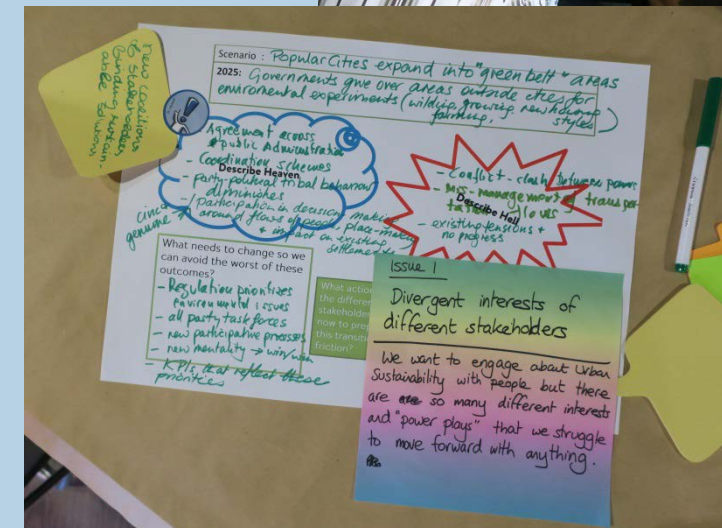 new coalitions
of stakeholders
building sustain-
able solutions
Scenario : Popular Cities expand into "green belt" areas
2025: Governments give over areas outside cities for
enviromental experiments (wilding, growing, new housing
farming, styles)
Agreement across
public Administration
- Coordination schemes
Describe Heaven
- party-political tribal behaviour
diminishes
- participation in decision making
around flows of people, place-making
+ impact on existing
settlements
genuine
- Conflict - clash between powers
- Mis-management of transpor-
tation
Describe Hell
- existing tensions +
no progress
What needs to change so we
can avoid the worst of these
outcomes?
- Regulation prioritizes
enviromental issues
- all party task forces
- new participative processes
- new mentality → win/win
- KPIs that reflect these
priorities
What action
the differen
stakeholder
now to prep
this transiti
friction?
Issue 1
Divergent interests of
different stakeholders
We want to engage about Urban
Sustainability with people but there
are so many different interests
and "power plays" that we struggle
to move forward with anything.